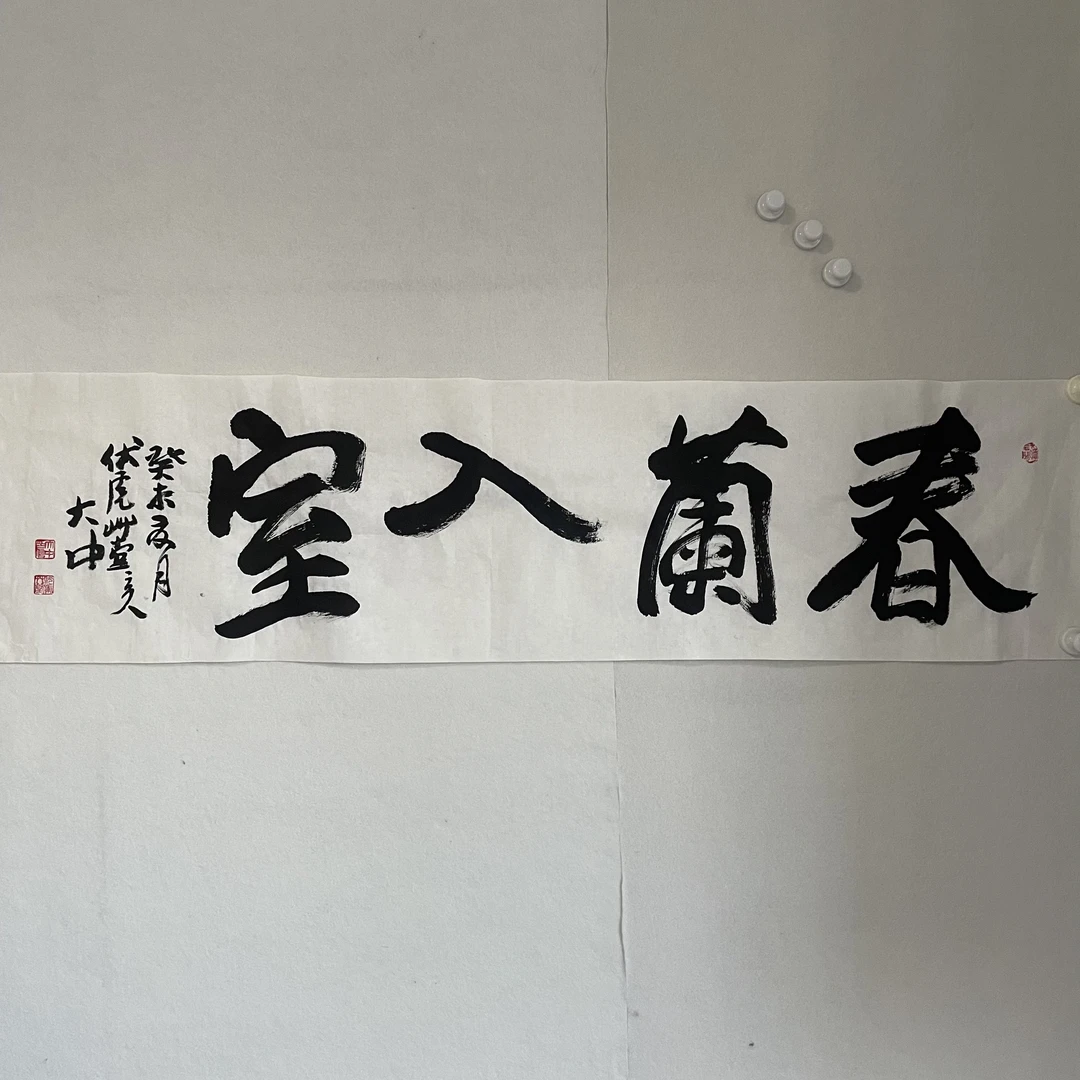 春蘭入室
癸未夏月
伏虎草堂主人
大中